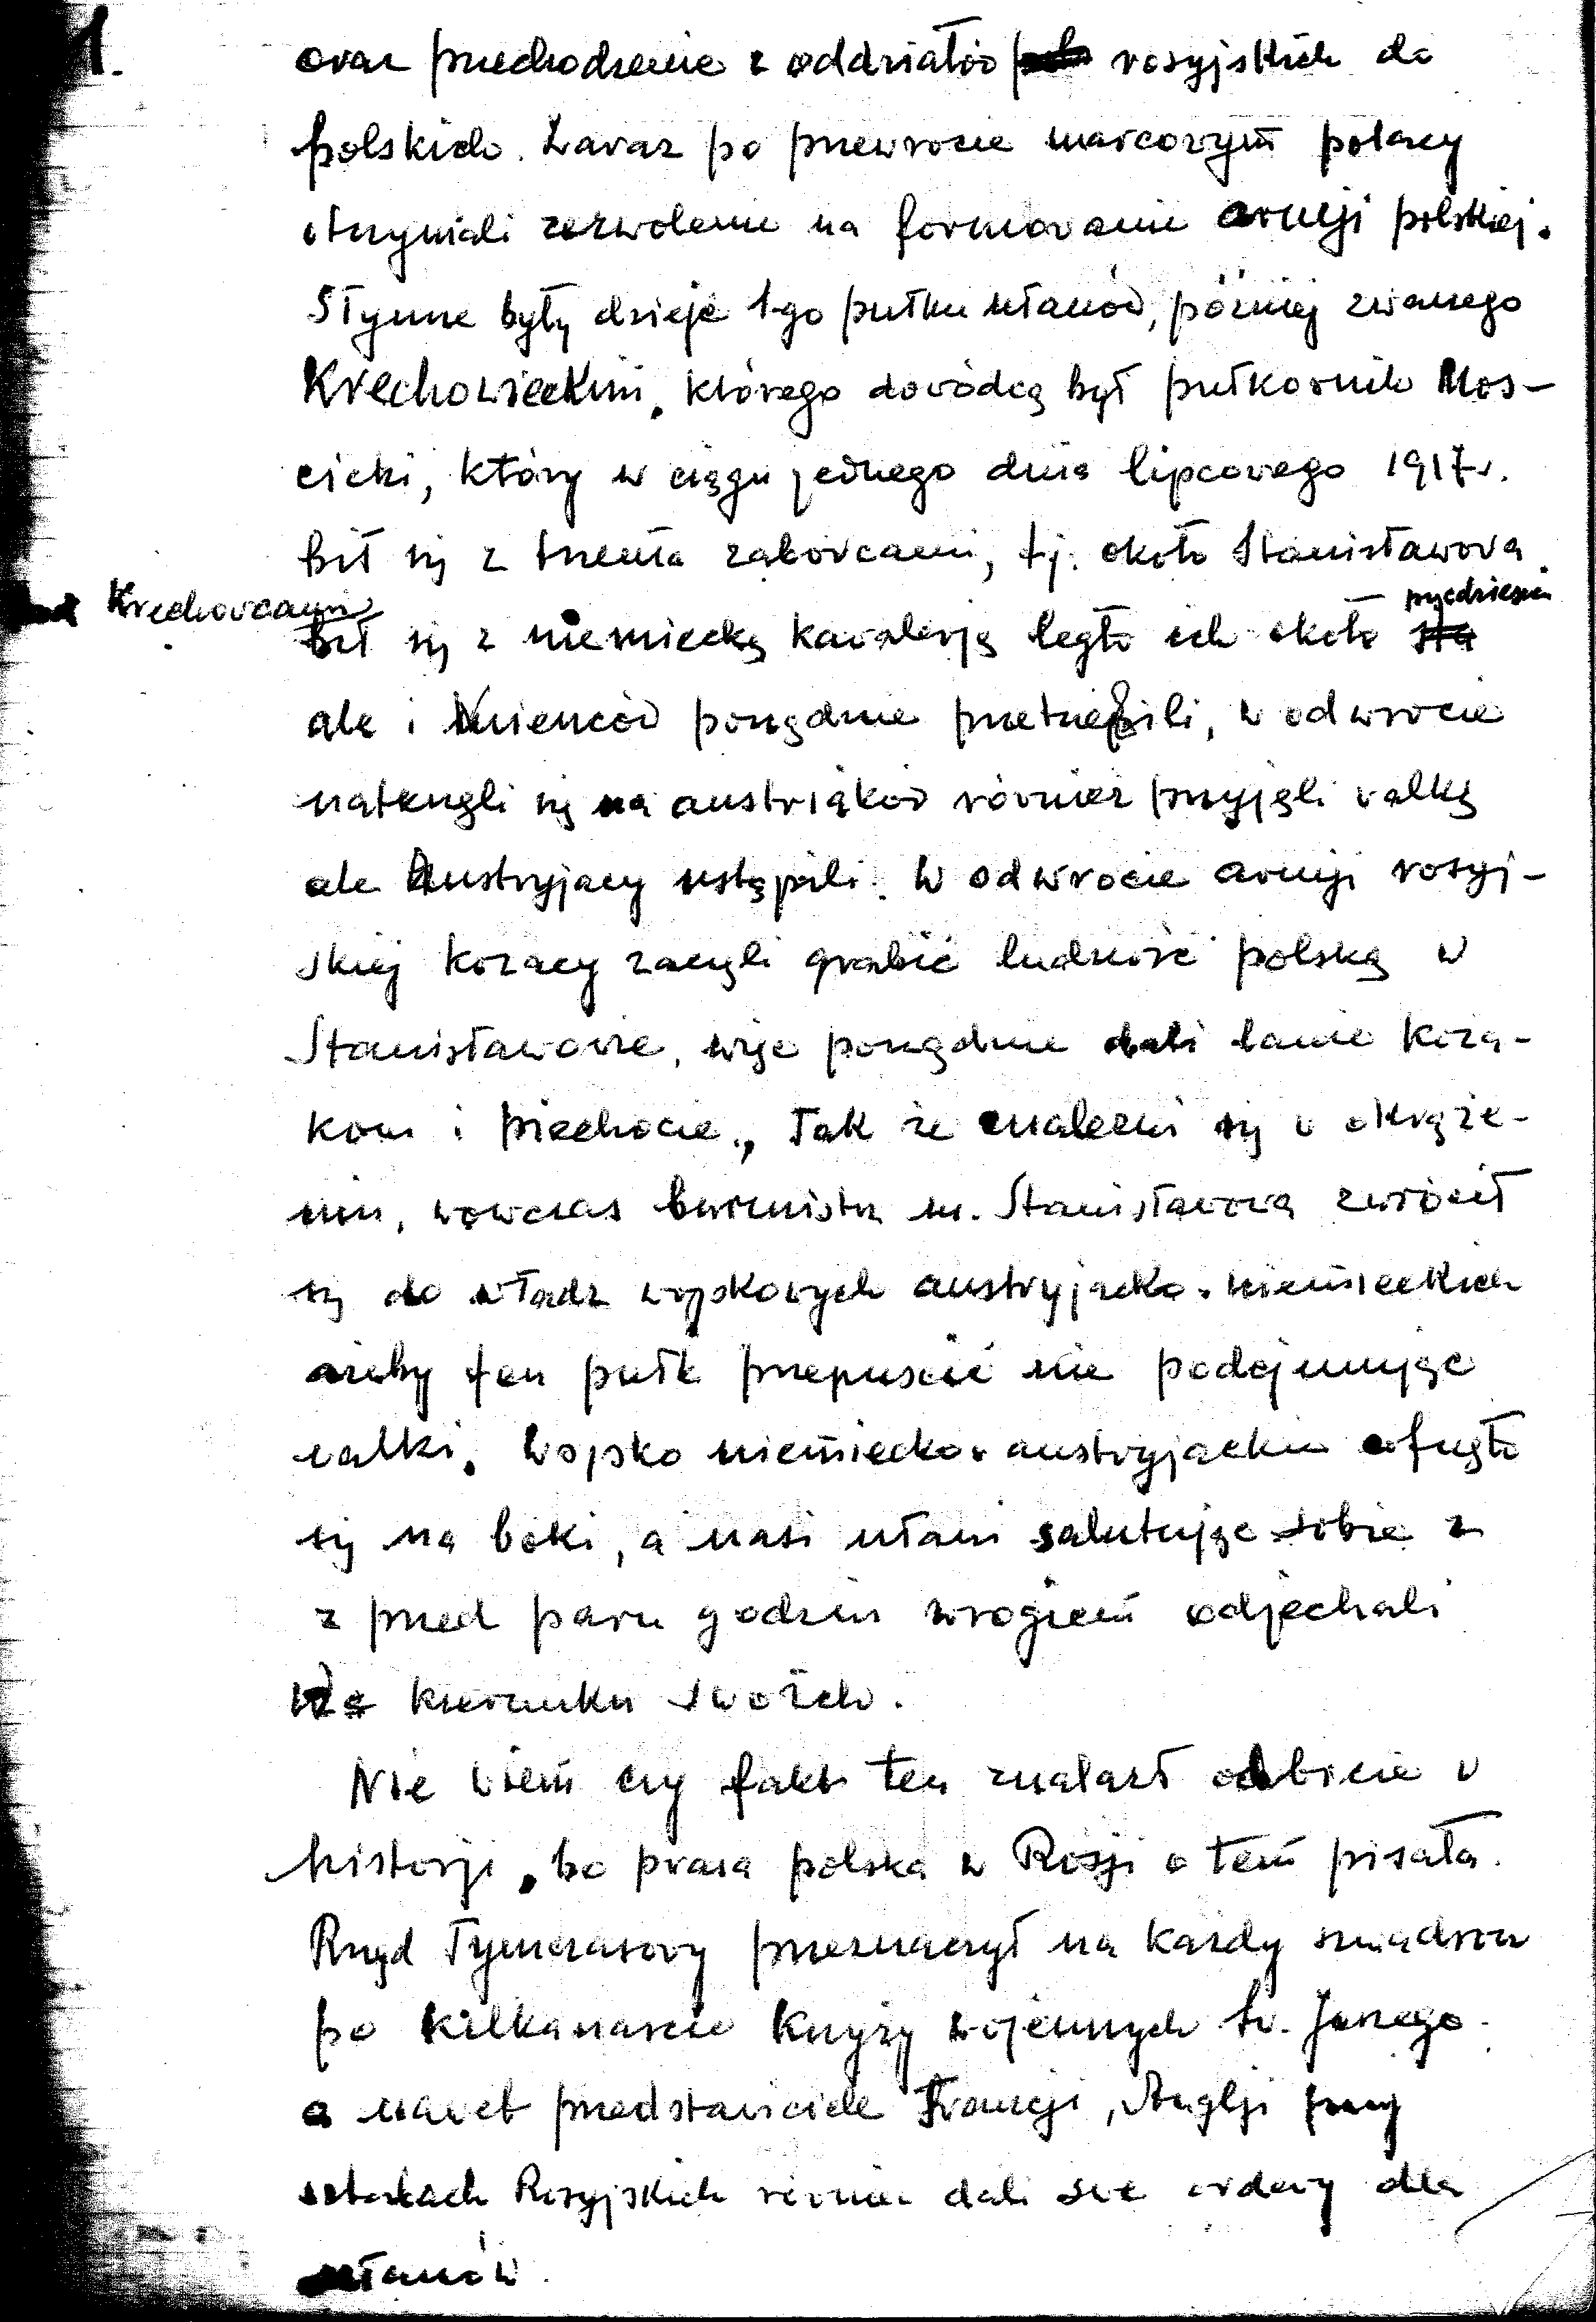 1.
oraz przechodzenie z oddziałów rosyjskich do
polskich. Zaraz po przewrocie marcowym polacy
otrzymali zezwolenie na formowanie armji polskiej.
Słynne były dzieje 1-go pułku ułanów, później zwanego
Krechowieckim, którego dowódcą był pułkownik Mos-
cicki, który w ciągu jednego dnia lipcowego 1917 r.
bił się z trzema zaborcami, tj. około Stanisławowa
Krechowcami
pięćdziesiąt
bił się z niemiecką kawalerją legło ich około sta
ale i Niemców porządnie przetrzebili, w odwrocie
natknęli się na austriaków również przyjęli walkę
ale Austryjacy ustąpili. W odwrocie armji rosyj-
skiej kozacy zaczęli grabić ludność polską w
Stanisławowie, więc porządnie dali łanie koza-
kom i piechocie, Tak że znaleźni się w okrąże-
niu, wówczas burmistrz m. Stanisławowa zwrócił
się do władz wojskowych austryjacko-niemieckich
ażeby ten pułk przepuścić nie podejmując
walki. Wojsko niemiecko-austryjackie cofnęło
się na boki, a nasi ułani salutując sobie z
z przed paru godzin wrogiem odjechali
kierunku swoich.
Nie wiem czy fakt ten znalazł odbicie w
historji, bo prasa polska w Rosji o tem pisała.
Rząd Tymczasowy przeznaczył na każdy szwadron
po kilkanaście krzyży wojennych św. Jerzego
a nawet przedstawiciele Francji, Anglji przy
sztabach Rosyjskich również dali swe ordery dla
ułanów.